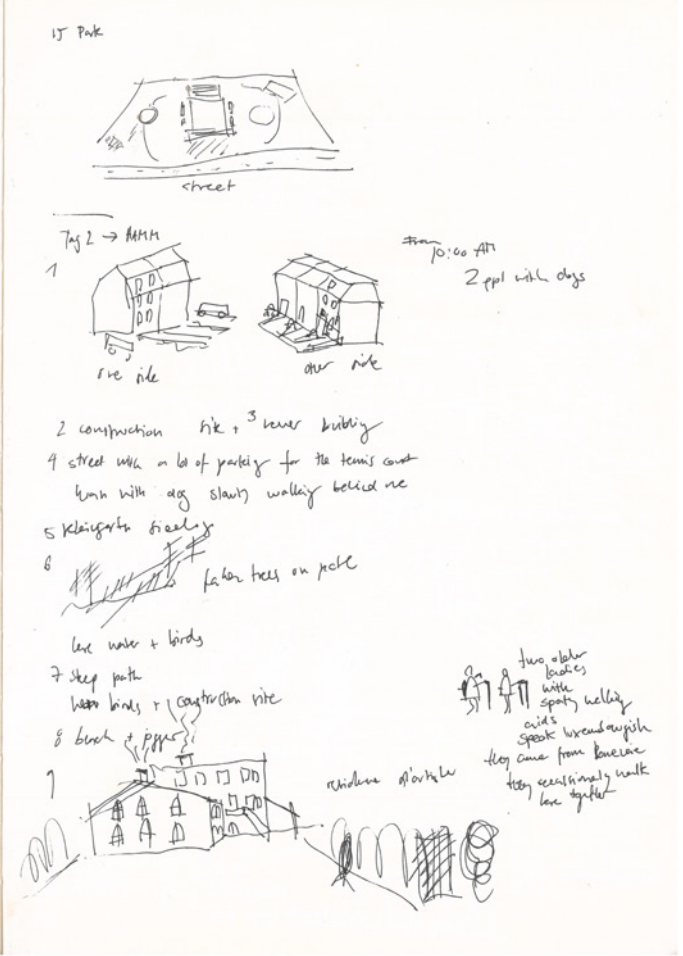 15 Park
street
Tag 2 →
1
10:00 AM
2 ppl with dogs
one side
other side
2 construction site + 3 sewer building
4 street with a lot of parking for the tennis court
with dog slowly walking behind me
5 Kleingarten
6
fallen trees on path
water + birds
7 steep path
birds + construction site
8 bench + jogger
9
two older
ladies
with
sporty walking
aids
speak luxembourgish
they came from
they occasionally walk
here together